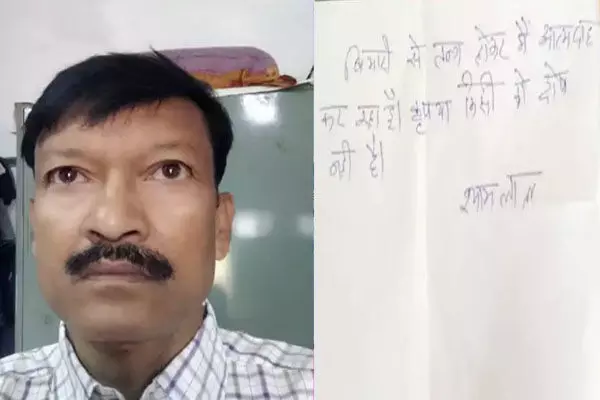 बिमारी से तन्ग होकर मैं आत्मदाह
कर रहा हूँ। कृपया किसी को दोष
नही है।
श्यामलाल